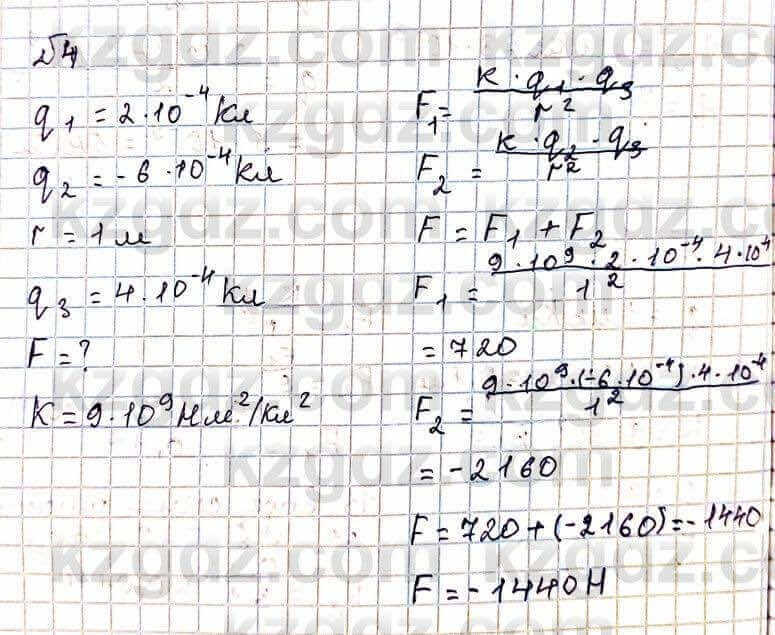 №4
q₁ = 2·10⁻⁴ Кл
q₂ = -6·10⁻⁴ Кл
r = 1 м
q₃ = 4·10⁻⁴ Кл
F = ?
K = 9·10⁹ Н м²/Кл²
F₁ = K·q₁·q₃ / r²
F₂ = K·q₂·q₃ / r²
F = F₁ + F₂
F₁ = 9·10⁹·2·10⁻⁴·4·10⁴ / 1²
= 720
F₂ = 9·10⁹·(-6·10⁻⁴)·4·10⁻⁴ / 1²
= -2160
F = 720 + (-2160) = -1440
F = -1440 Н
kzgdz.com